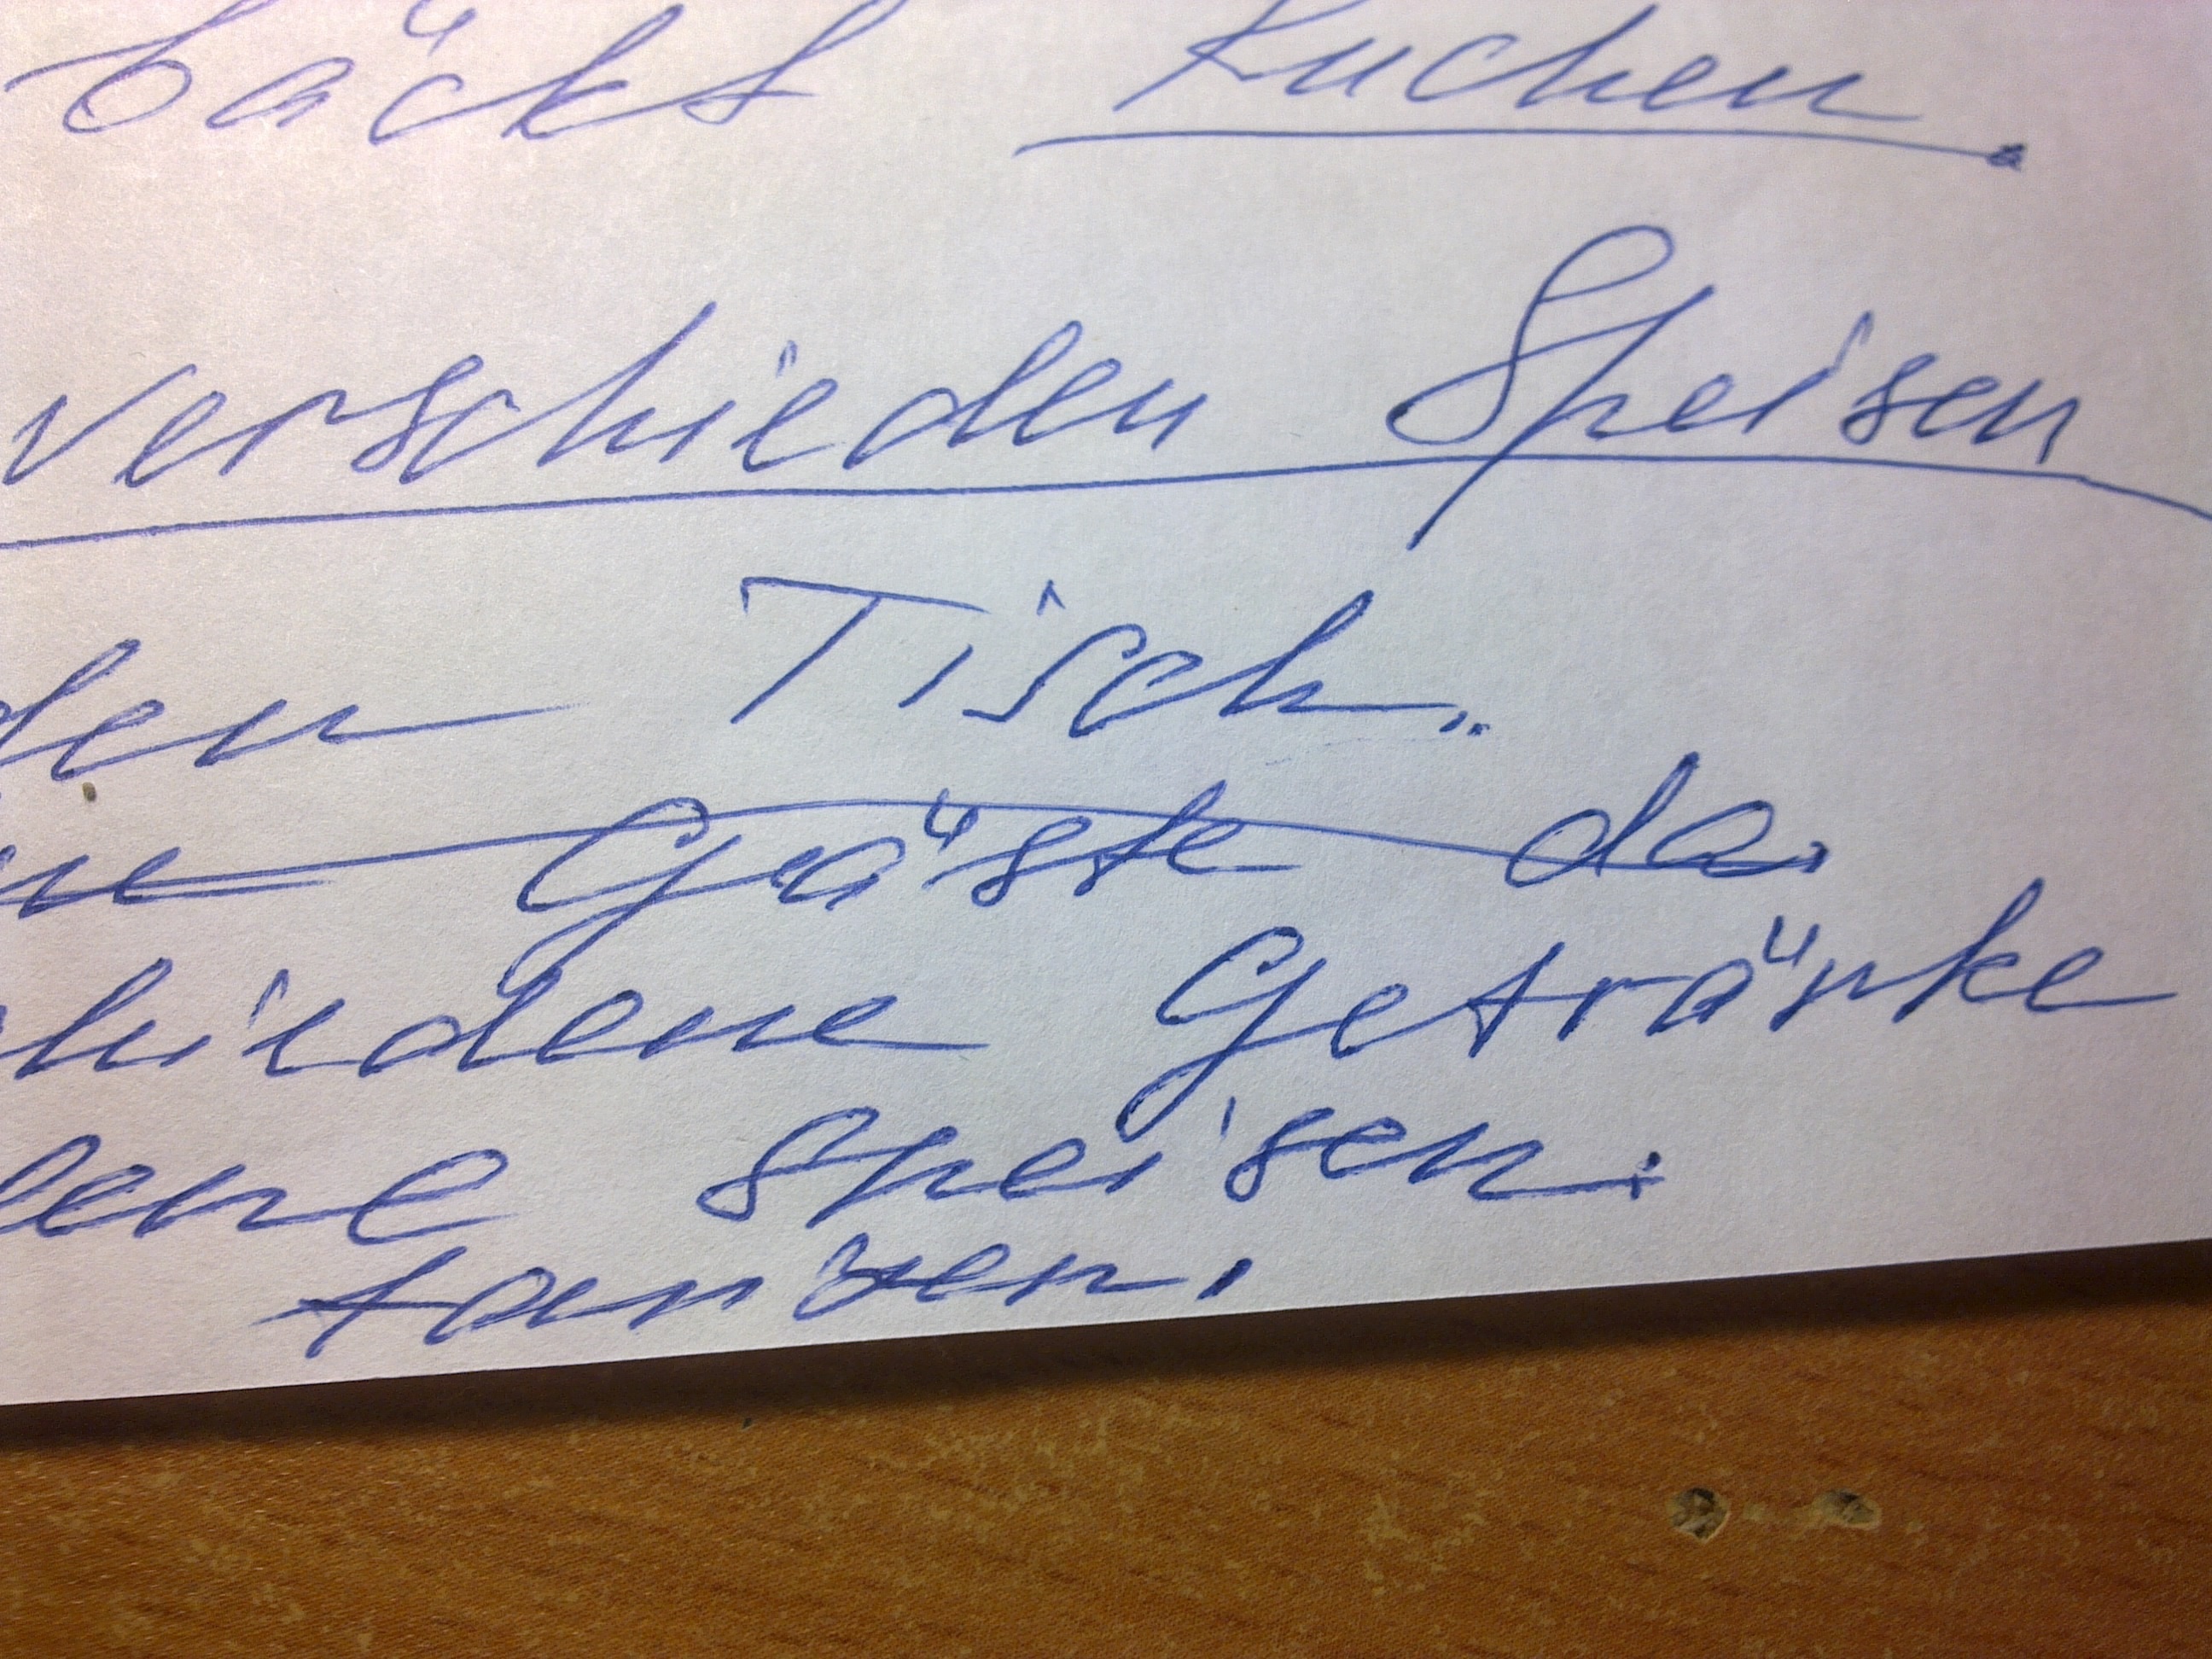 bäckt Kuchen.
verschieden Speisen
den Tisch.
Gäste da.
hiedene Getränke
ene Speisen.
tanzen.